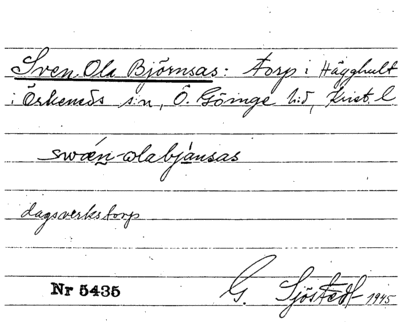 Sven Ola Björnsas: Torp i Hägghult
i Örkeneds s:n, Ö. Göinge h:d, Krist. l
swæn-olabjånsas
dagsverkstorp
Nr 5435
G. Sjöstedt 1945